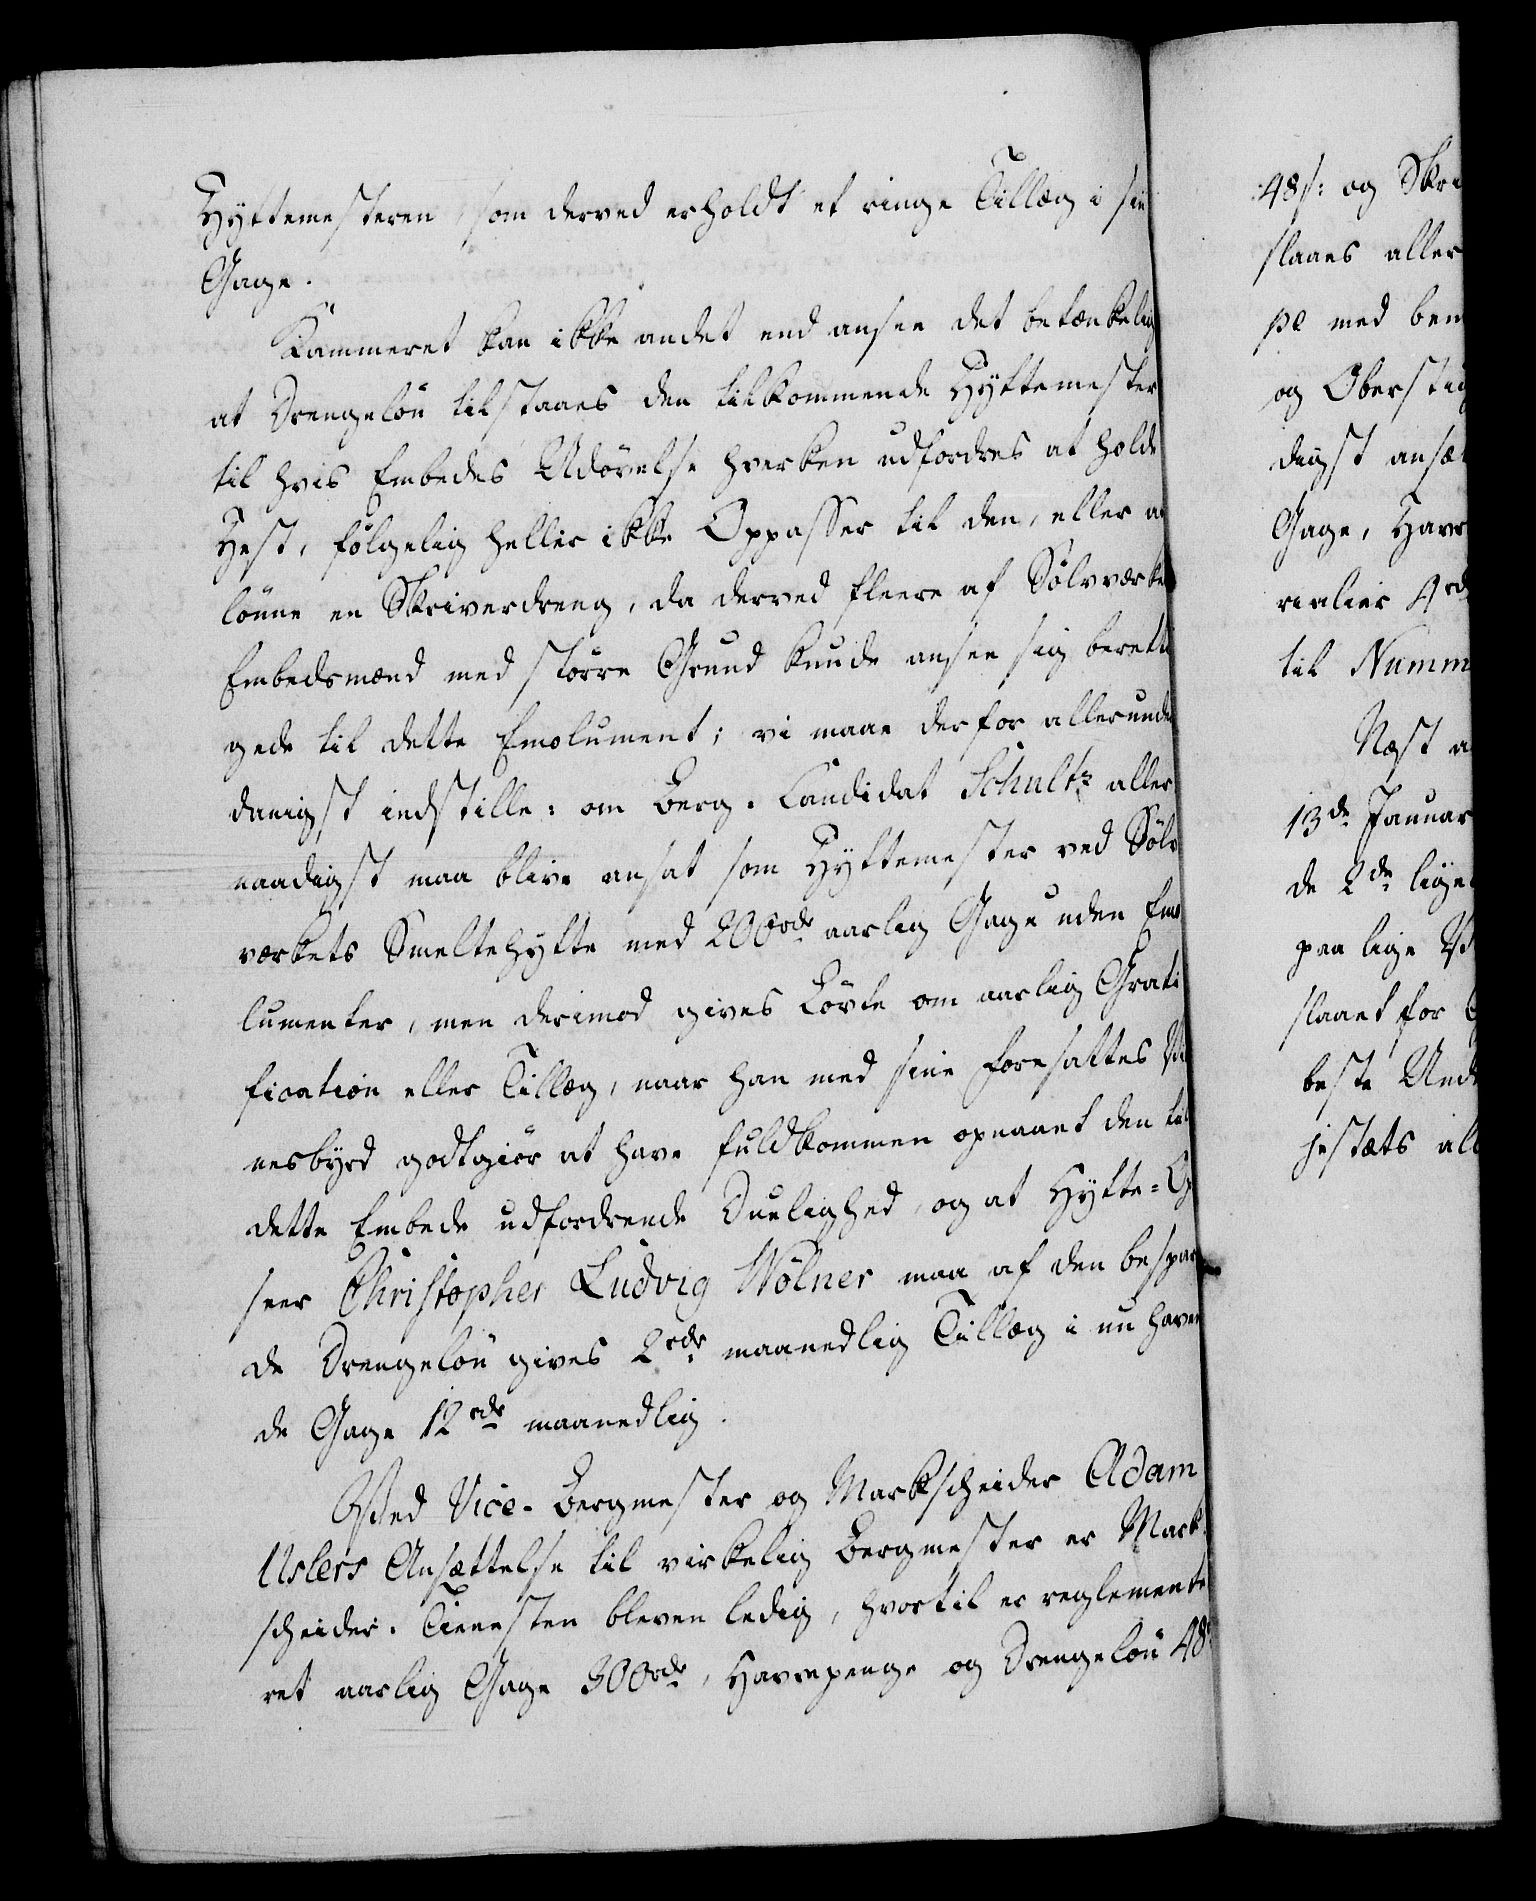 Hyttemesteren, som derved erholdt et ringe Tillæg i sin
Gage.
Kammeret kan ikke andet end ansee det betænkelig
at Drengelön tilstaaes den tilkommende Hyttemester
til hvis Embedes Udövelse hverken udfordres at holde
Hest, fölgelig heller ikke Oppasser til den, eller at
lönne en Skriverdreng, da derved fleere af Sölvværkets
Embedsmænd med större Grund kunde ansee sig beretti
gede til dette Emolument; vi maae derfor allerunder
danigst indstille: om Berg-Candidat Schultz aller
naadigst maa blive ansat som Hyttemester ved Sölv
værkets Smeltehytte med 200 rdr aarlig Gage uden Emo
lumenter, men derimod gives Lövte om aarlig Grati
fication eller Tillæg, naar han med sine Foresattes Vid
nesbyrd godtgiör at have fuldkommen opnaaet den til
dette Embede udfordrende Duelighed, og at Hytte-
seer Christopher Ludvig Wölner maa af den bespar
de Drengelön gives 2 rdr maanedlig Tillæg i nu haven
de Gage 12 rdr maanedlig.
Ved Vice-Bergmester og Markscheider Adam
Uslers Ansættelse til virkelig Bergmester er Mark-
scheider-Tienesten bleven ledig, hvortil er reglemente
ret aarlig Gage 300 rdr, Havrepenge og Drengelön 48
48 s: og Skri
slaaes aller
pe med bem
og Oberstig
digst ansæt
Gage, Havr
rialier 4 rd
til Numm
Næst a
13de Januar
de 2de lige
paa lige V
slaaet for
beste Und
jestæts all